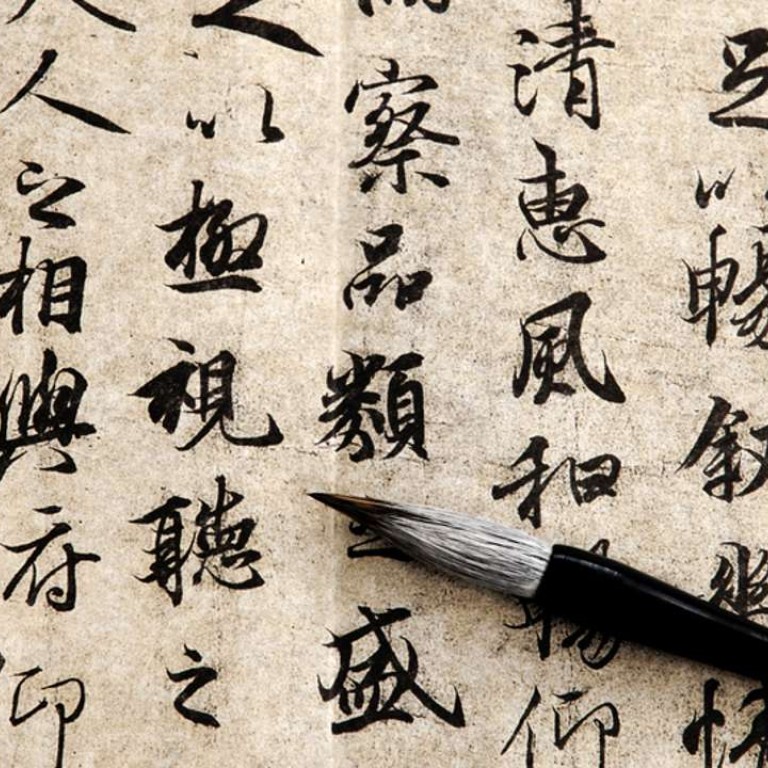 足以暢叙幽情
清惠風和暢仰
察品類之盛
以極視聽之
人之相與俯仰